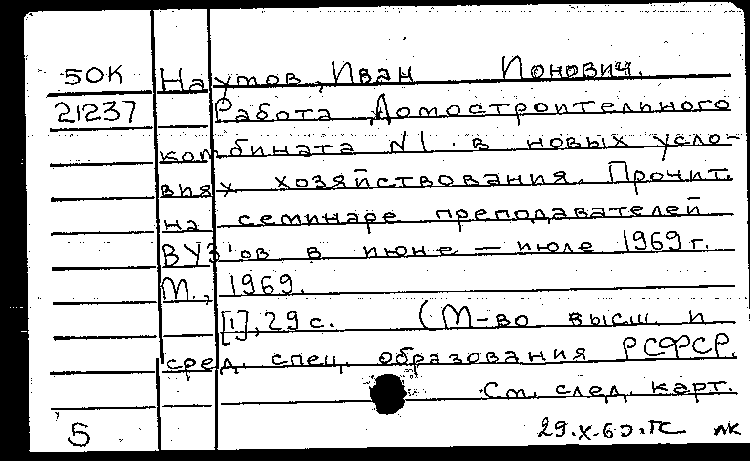 50К Наумов, Иван Ионович.
21237 Работа Домостроительного
комбината N1 в новых усло-
виях хозяйствования. Прочит.
на семинаре преподавателей
ВУЗ'ов в июне — июле 1969 г.
М., 1969.
[1], 29 с. (М-во высш. и
сред. спец. образования РСФСР.
См. след. карт.
5 29.X-69.